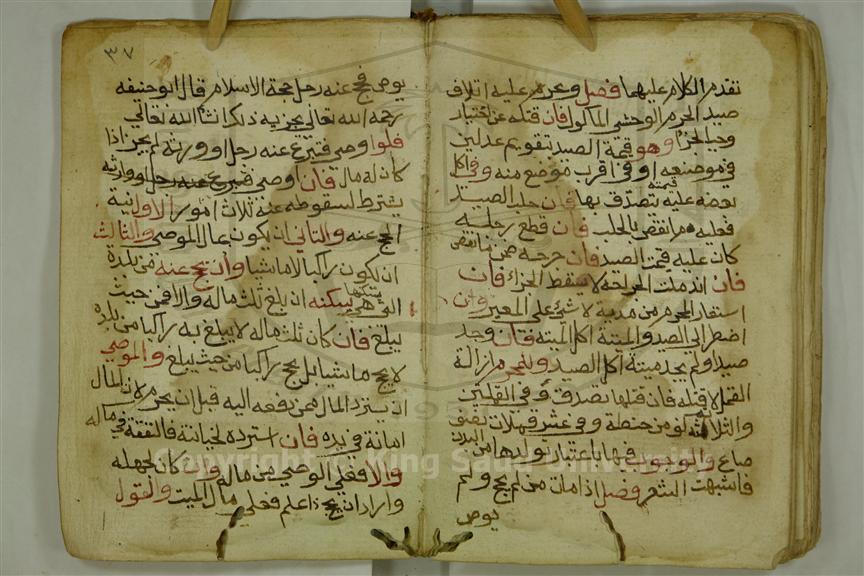 تقدم الكلام عليهما فصل ويحرم عليه اتلاف
صيد الحرم الوحشي الماكول فان قتله عن اختيار
وجب الجزا وهو قيمة الصيد بتقويم عدلين
في موضعه او في اقرب موضع منه وفي اكل
بعضه عليه قيمته يتصدق بها فان حلب الصيد
فعليه ما انتقص بالحلب فان قطع رجليه
كان عليه قيمة الصيد فان جرحه ضمن ما انتقص
فان اندملت الجراحة لا يسقط الجزاء فان
استعار المحرم من مدية لا شئ على المعير وان
اضطر الى الصيد والميتة اكل الميتة فان وجد
صيدا ولم يجد ميتة اكل الصيد ويحرم ازالة
القمل لا قتله فان قتلها تصدق وفي القملتين
والثلاثة كو من حنطة وفي عشر قملات نصف
صاع والوجوب فيها باعتبار تولدها من البدن
فاشبهت الشعر فصل اذا مات من لم يحج ولم
يوص
٣٧
يوص فحج عنه رجل حجة الاسلام قال ابو حنيفه
رحمه الله تعالى يجزيه ذلك ان شا الله تعالى
فلو اوصى فتبرع عنه رجل او ورثه لم يجز اذا
كان له مال فان اوصى فتبرع عنه رجل او وارثه
يشترط لسقوطه عنه ثلاث امور الاول نية
الحج عنه والثاني ان يكون بمال الموصي والثالث
ان يكون راكبا لا ماشيا وان يحج عنه من بلدة
التي هي يسكنها يسكنه ان بلغ ثلث ماله والا فمن حيث
يبلغ فان كان ثلث ماله لا يبلغ به راكبا من بلده
لا يحج ماشيا بل يحج راكبا من حيث يبلغ والموصي
ان يسترد المال ممن دفعه اليه قبل ان يحرم لان المال
امانة في يده فان استرده لخيانة فالنفقة في ماله
والا ففي الوصي من ماله وان كان لجهله
واراد ان يحج ذا علم فعلى مال الميت والقول